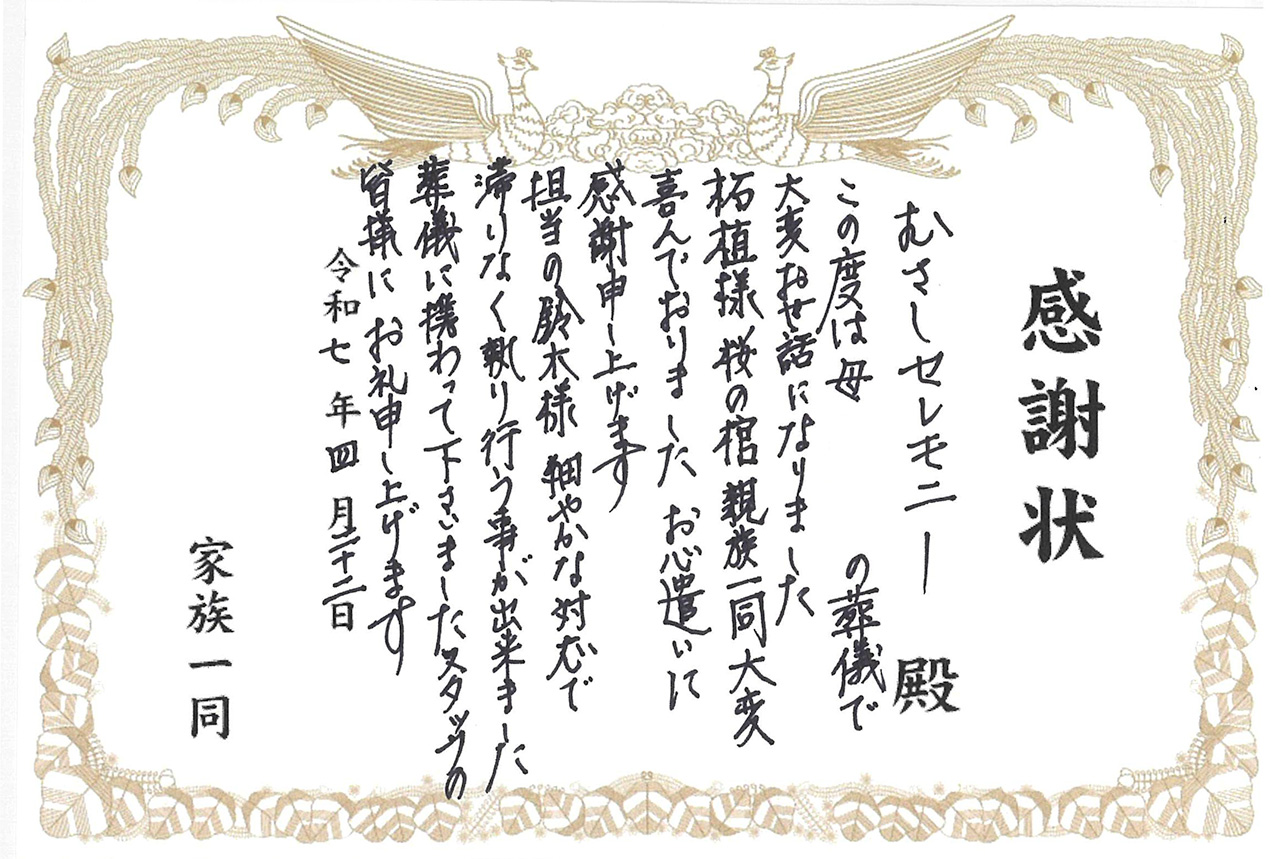 感謝状
むさしセレモニー 殿
この度は母 の葬儀で
大変お世話になりました
柘植様 桜の棺 親族一同大変
喜んでおりました お心遣いに
感謝申し上げます
担当の鈴木様 細やかな対応で
滞りなく執り行う事が出来ました
葬儀に携わって下さいましたスタッフの
皆様に お礼申し上げます
令和七年四月二十二日
家族一同